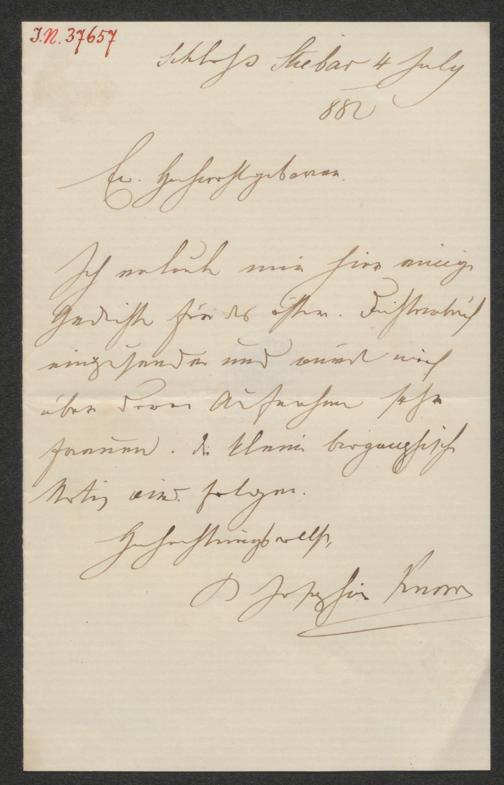 J.N. 37657
Schloß Stiebar 4 July
882
Ew. Hochwohlgeboren.
Ich erlaube mir hier einige
Gedichte für das österr. Dichterbuch
einzusenden und würde mich
über deren Aufnahme sehr
freuen. Die kleine biographische
Notiz wird folgen.
Hochachtungsvollst,
Josephine Knorr